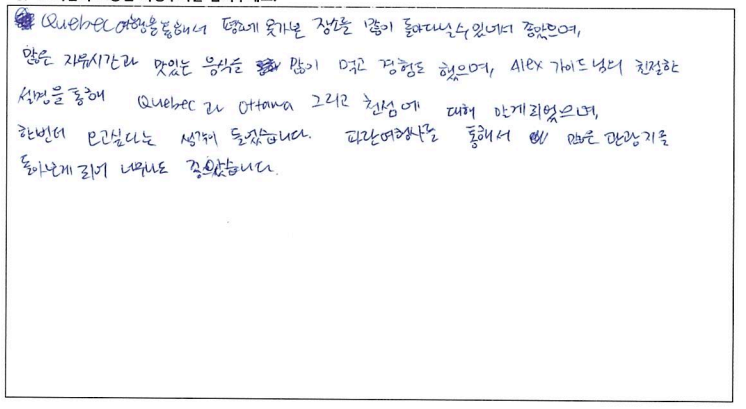 Quebec 여행을 통해서 평소에 못가본 장소를 많이 돌아다닐수 있어서 좋았으며,
많은 자유시간과 맛있는 음식들 많이 먹고 경험도 했으며, Alex 가이드님의 친절한
설명을 통해 Quebec과 Ottawa 그리고 천섬에 대해 알게되었으며,
한번더 오고싶다는 생각이 들었습니다. 파란여행사를 통해서 많은 관광지를
돌아보게 되어 너무나도 좋았습니다.